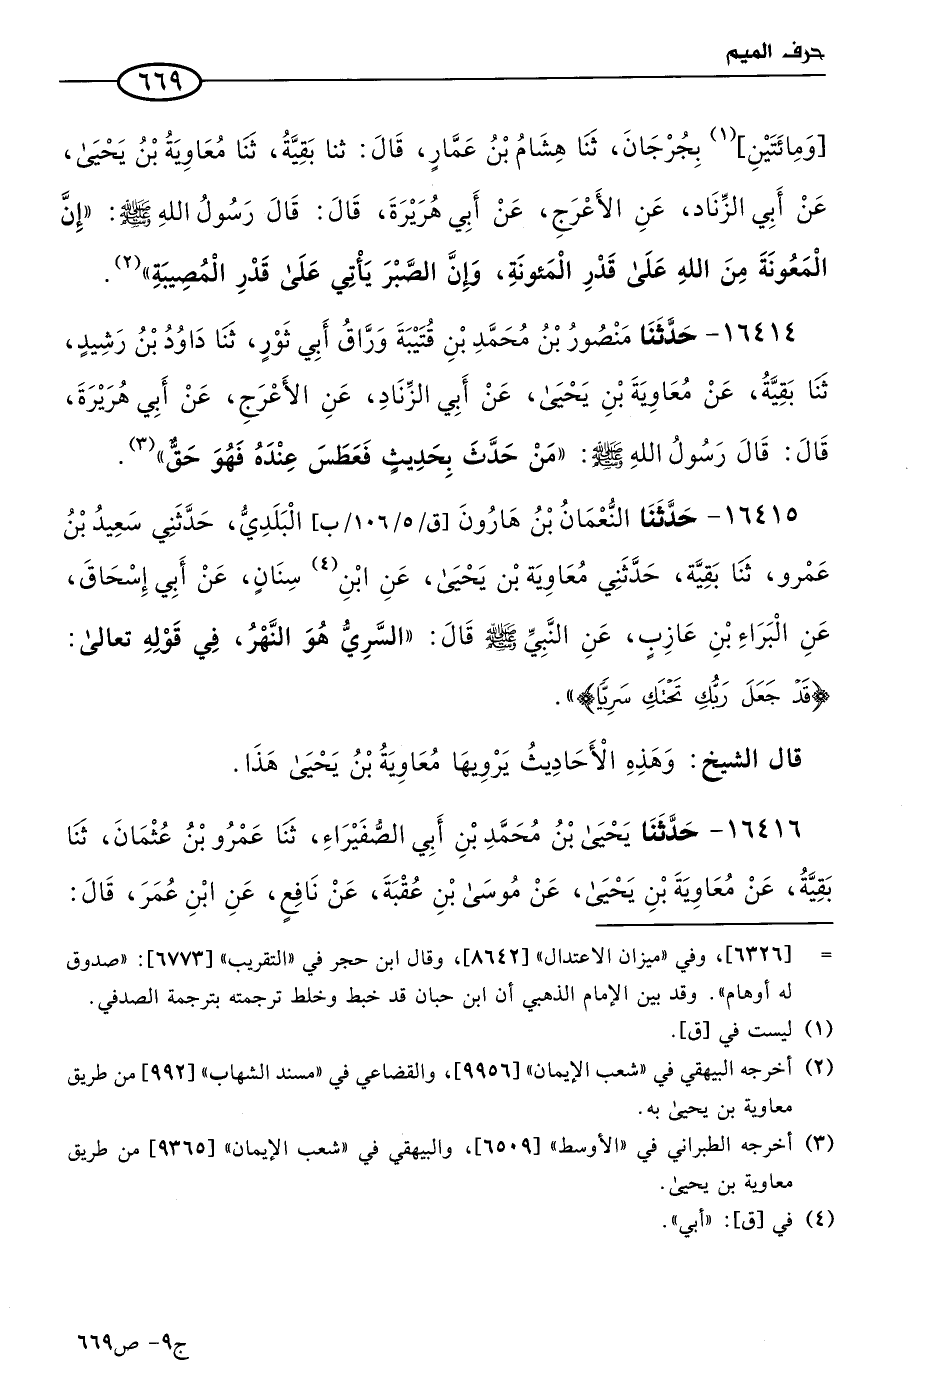 حرف الميم
٦٦٩
[وَمِائَتَيْنِ](١) بِجُرْجَانَ، ثَنَا هِشَامُ بْنُ عَمَّارٍ، قَالَ: ثنا بَقِيَّةُ، ثَنَا مُعَاوِيَةُ بْنُ يَحْيَىٰ،
عَنْ أَبِي الزِّنَاد، عَنِ الأَعْرَجِ، عَنْ أَبِي هُرَيْرَةَ، قَالَ: قَالَ رَسُولُ اللهِ ﷺ: «إِنَّ
الْمَعُونَةَ مِنَ اللهِ عَلَىٰ قَدْرِ الْمَئونَةِ، وَإِنَّ الصَّبْرَ يَأْتِي عَلَىٰ قَدْرِ الْمُصِيبَةِ»(٢).
١٦٤١٤- حَدَّثَنَا مَنْصُورُ بْنُ مُحَمَّدِ بْنِ قُتَيْبَةَ وَرَّاقُ أَبِي ثَوْرٍ، ثَنَا دَاوُدُ بْنُ رَشِيدٍ،
ثَنَا بَقِيَّةُ، عَنْ مُعَاوِيَةَ بْنِ يَحْيَىٰ، عَنْ أَبِي الزِّنَادِ، عَنِ الأَعْرَجِ، عَنْ أَبِي هُرَيْرَةَ،
قَالَ: قَالَ رَسُولُ اللهِ ﷺ: «مَنْ حَدَّثَ بِحَدِيثٍ فَعَطَسَ عِنْدَهُ فَهُوَ حَقٌّ»(٣).
١٦٤١٥- حَدَّثَنَا النُّعْمَانُ بْنُ هَارُونَ [ق/٥/١٠٦/ب] الْبَلَدِيُّ، حَدَّثَنِي سَعِيدُ بْنُ
عَمْرو، ثَنَا بَقِيَّة، حَدَّثَنِي مُعَاوِيَة بْن يَحْيَىٰ، عَنِ ابْنِ(٤) سِنَانٍ، عَنْ أَبِي إِسْحَاقَ،
عَنِ الْبَرَاءِ بْنِ عَازِبٍ، عَنِ النَّبِيِّ ﷺ قَالَ: «السَّرِيُّ هُوَ النَّهْرُ، فِي قَوْلِهِ تعالىٰ:
﴿قَدْ جَعَلَ رَبُّكِ تَحْتَكِ سَرِيًّا﴾».
قال الشيخ: وَهَذِهِ الْأَحَادِيثُ يَرْوِيهَا مُعَاوِيَةُ بْنُ يَحْيَىٰ هَذَا.
١٦٤١٦- حَدَّثَنَا يَحْيَىٰ بْنُ مُحَمَّدِ بْنِ أَبِي الصُّفَيْرَاءِ، ثَنَا عَمْرُو بْنُ عُثْمَانَ، ثَنَا
بَقِيَّةُ، عَنْ مُعَاوِيَةَ بْنِ يَحْيَىٰ، عَنْ مُوسَىٰ بْنِ عُقْبَةَ، عَنْ نَافِعٍ، عَنِ ابْنِ عُمَرَ، قَالَ:
= [٦٣٢٦]، وفي «ميزان الاعتدال» [٨٦٤٢]، وقال ابن حجر في «التقريب» [٦٧٧٣]: «صدوق
له أوهام». وقد بين الإمام الذهبي أن ابن حبان قد خبط وخلط ترجمته بترجمة الصدفي.
(١) ليست في [ق].
(٢) أخرجه البيهقي في «شعب الإيمان» [٩٩٥٦]، والقضاعي في «مسند الشهاب» [٩٩٢] من طريق
معاوية بن يحيىٰ به.
(٣) أخرجه الطبراني في «الأوسط» [٦٥٠٩]، والبيهقي في «شعب الإيمان» [٩٣٦٥] من طريق
معاوية بن يحيىٰ.
(٤) في [ق]: «أبي».
ج٩- ص٦٦٩